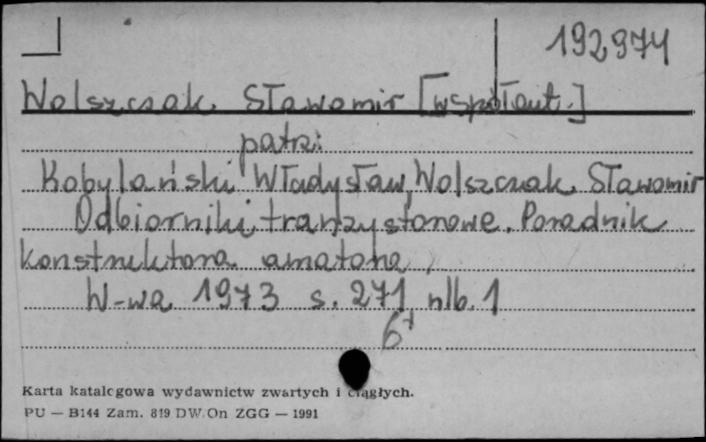 192974
Wolszczak. Sławomir [współaut.]
patrz:
Kobylański Władysław, Wolszczak. Sławomir
Odbiorniki tranzystorowe. Poradnik
konstruktora amatora,
W-wa 1973 s. 271 nlb. 1
6+
Karta katalogowa wydawnictw zwartych i ciągłych.
PU — B144 Zam. 819 DW.On ZGG — 1991